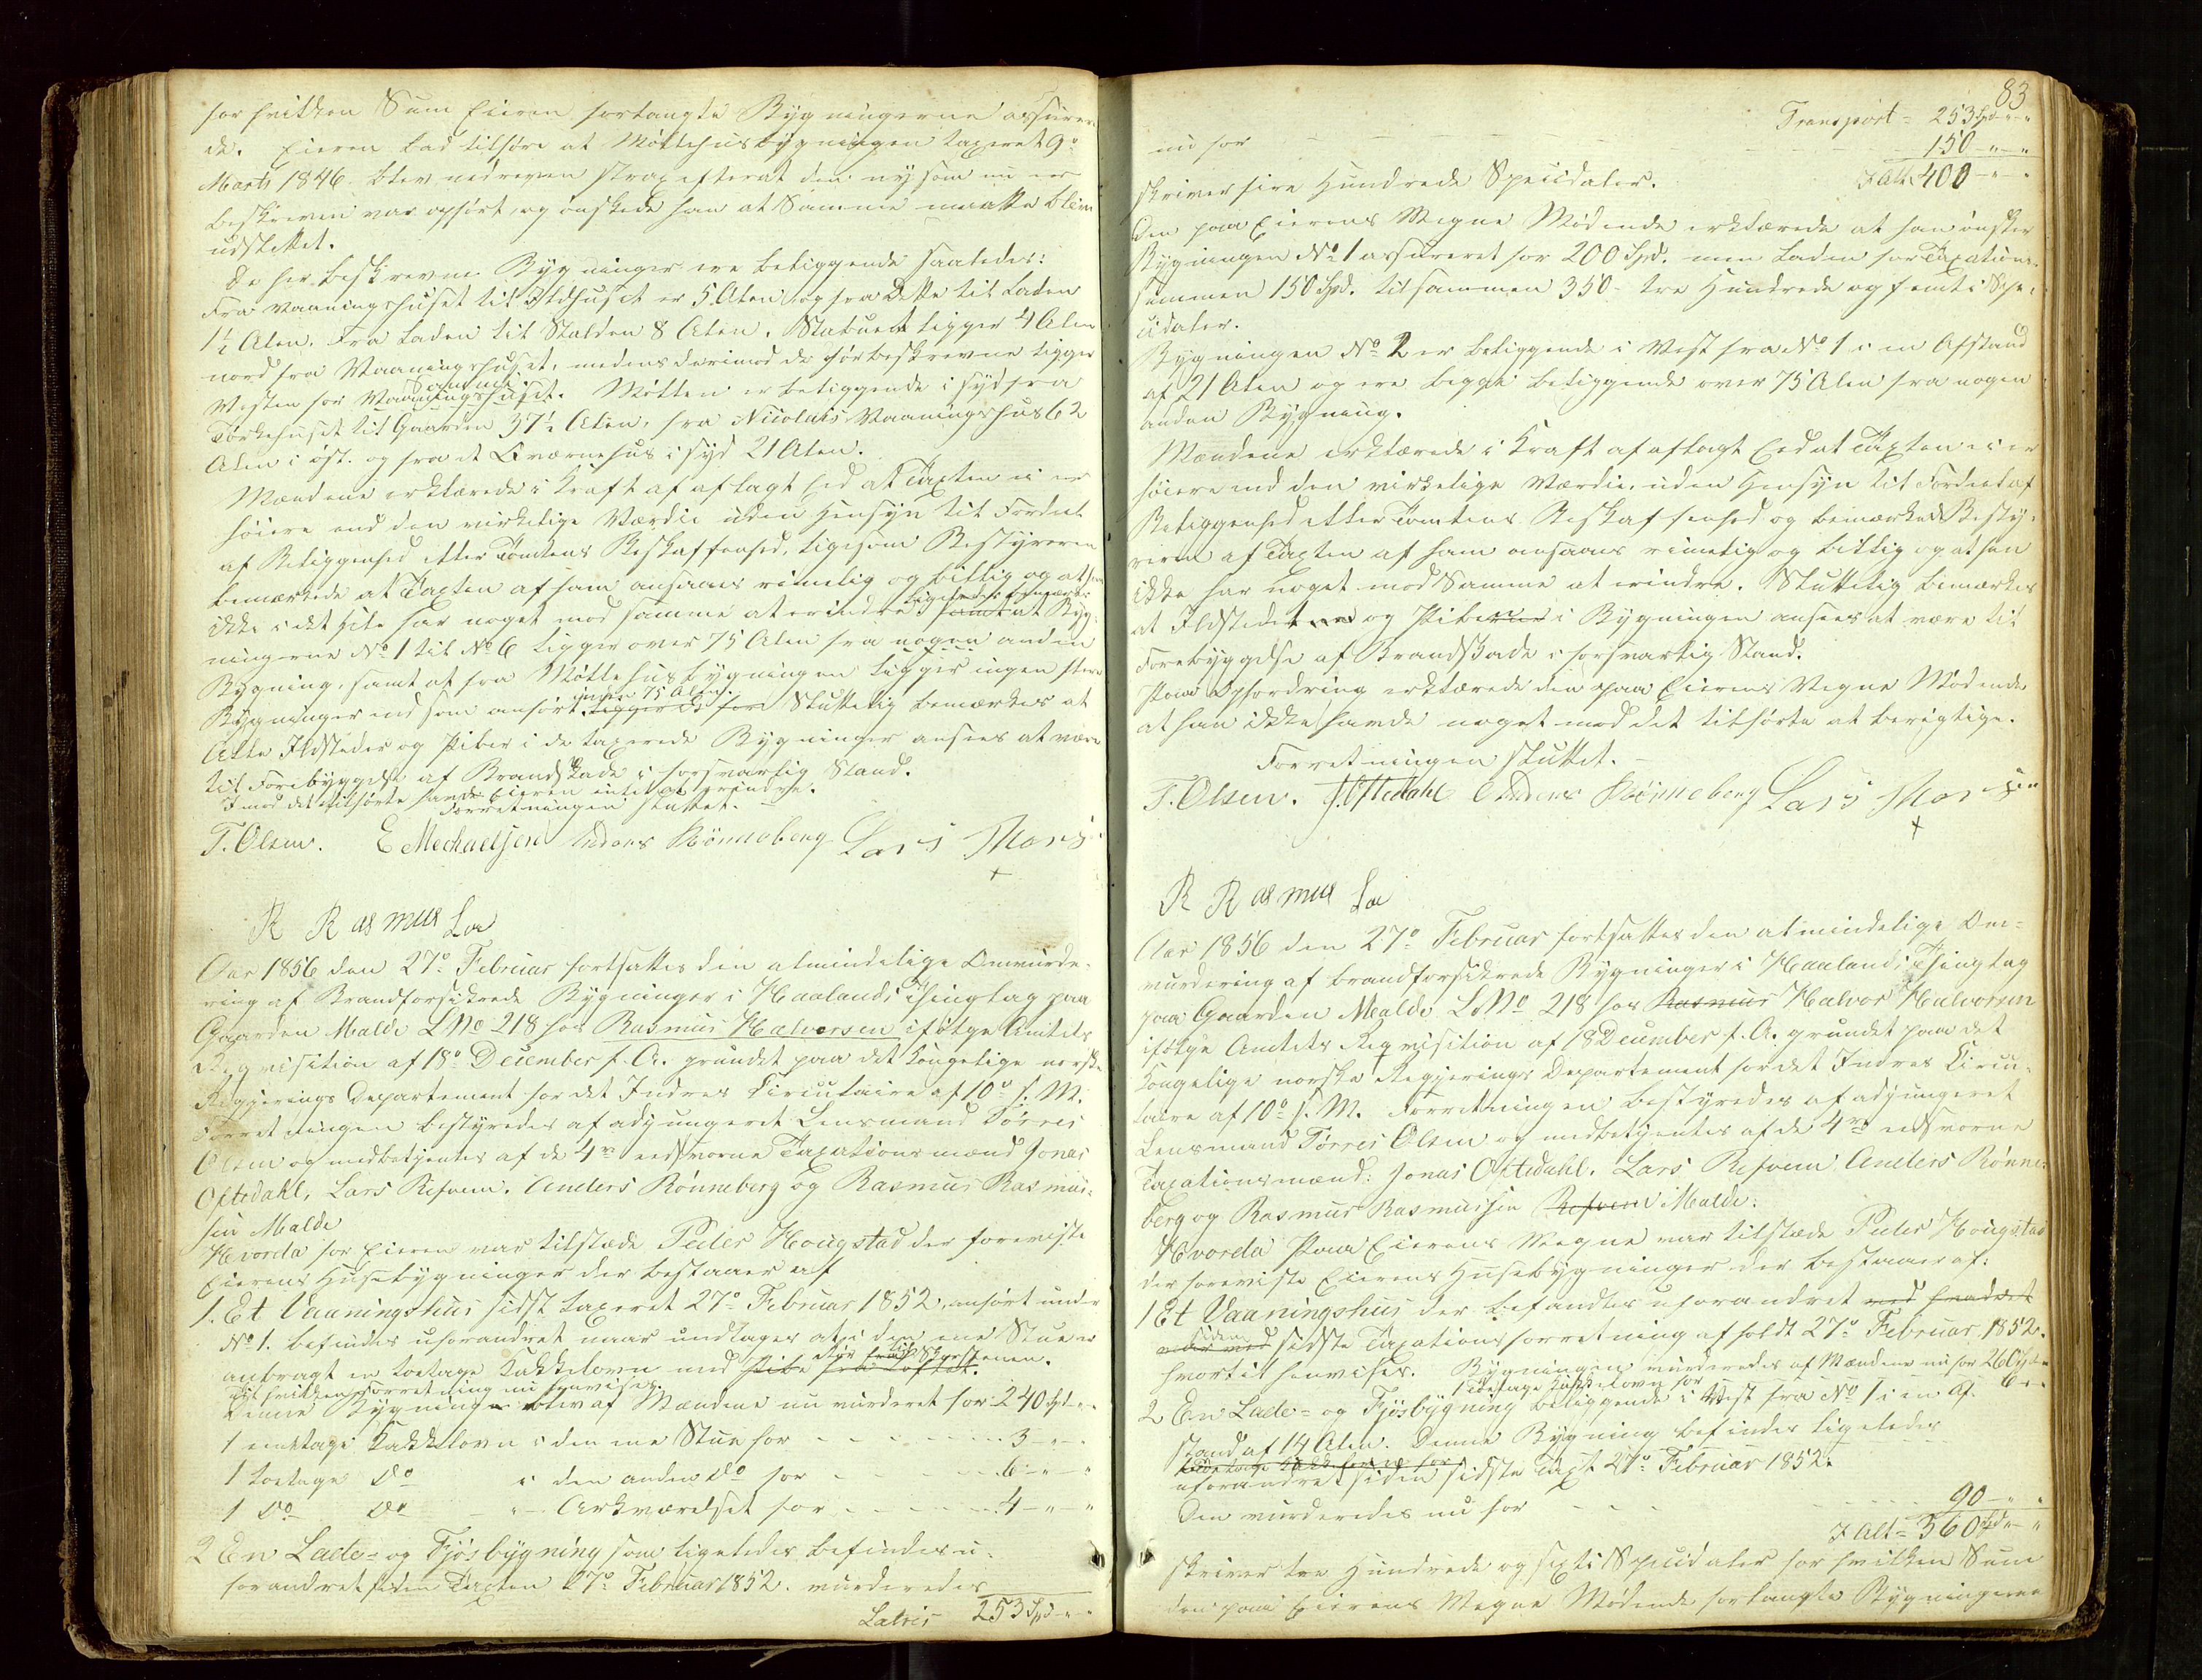 for hvilken Sum Eieren forlangte Bygningerne assurere-
de. Eieren bad tilføre at Møllehusbygningen taxeret 9de
Marts 1846 blev nedreven strax efterat den ny som nu er
beskreven var opført, og ønskede han at Samme maatte blive
udslettet.
De her beskrevne Bygninger ere beliggende saaledes:
Fra Vaaningshuset til Ildhuset er 5 Alen og fra Dette til Laden
1½ Alen. Fra Laden til Stalden 8 Alen. Staburet ligger 4 Alen
nord fra Vaaningshuset, medens derimod de før beskrevne ligger
Vesten for Vaaningshuset. Møllen er beliggende i syd fra
Samme
Tørkehuset til Gaarden 37½ Alen, fra Nicolais Vaaningshus 62
Alen i øst. og fra et Qværnehus i syd 21 Alen.
Mændene erklærede i Kraft af aflagt Eed at Taxten ei er
høiere end den virkelige Værdie uden Hensyn til Fordeel
af Beliggenhed eller Tomtens Beskaffenhed, ligesom Bestyreren
bemærkede at Taxten af ham ansaaes rimelig og billig og at han
ikke i det Hele har noget mod samme at erindre. ligeledes bemærkes samt at Byg-
ningerne No 1 til No 6 ligger over 75 Alen fra nogen anden
Bygning, samt at fra Møllehusbygningen ligger ingen flere
Bygninger end som anført inden 75 Alen. Sluttelig bemærkes at
Alle Ildsteder og Piber i de taxerede Bygninger ansees at være
til Forebyggelse af Brandskade i forsvarlig Stand.
Imod det tilførte havde Eieren intet at erindre.
Forretningen sluttet.
T. Olsen. E Mechaelsen Anders Rønneberg Lars
R Rasmus
Aar 1856 den 27de Februar fortsattes den almindelige Omvurde-
ring af Brandforsikrede Bygninger i Haalands Thinglag paa
Gaarden Malde LNo 218 hos Rasmus Halvorsen ifølge Amtets
Reqvisition af 18de December f. A. grundet paa det Kongelige norske
Regjerings Departement for det Indres Circulaire af 10de s. M.
Forretningen bestyredes af adjungeret Lensmand Tørres
Olsen og medbetjentes af de 4re eedsvorne Taxationsmænd Jonas
Oftedahl, Lars Refvem. Anders Rønneberg og Rasmus Rasmus-
sen Malde
Hvorda for Eieren var tilstæde Peder Hougstad der foreviste
Eierens Husebygninger der bestaaer af
1. Et Vaaningshus sidst taxeret 27de Februar 1852, anført under
No 1. befindes uforandret naar undtages at i den ene Stue er
anbragt en toetage Kakkelovn med Pibe
til hvilken Forretning nu henvises.
Denne Bygning blev af Mændene nu vurderet for 240 Spd - "
1 eenetage Kakkelovn i den ene Stue for - - - 3 - " - "
1 toetage Do i den anden Do for - - - 6 - " - "
1 Do Do - " - Arkværelset for - - - 4 - " - "
2 En Lade- og Fjøsbygning som ligeledes befindes u-
forandret siden Taxten 27de Februar 1852. vurderedes
Lateris 253 Spd - " - "
83
Transport - 253 Spd - " - "
nu for 150 - " - "
I Alt 400 - " - "
skriver fire Hundrede Speciedaler.
Den paa Eierens Vegne Mødende erklærede at han ønsker
Bygningen No 1 assureret for 200 Spd. men Laden for Taxations-
summen 150 Spd. tilsammen 350 - tre Hundrede og femti Spe-
ciedaler.
Bygningen No 2 er beliggende i Vest fra No 1 i en Afstand
af 21 Alen og ere begge beliggende over 75 Alen fra nogen
anden Bygning.
Mændene erklærede i Kraft af aflagt Eed at Taxten ei er
høiere end den virkelige Værdie, uden Hensyn til Fordeel af
Beliggenhed eller Tomtens Beskaffenhed og bemærkede Besty-
reren af Taxten af ham ansaaes rimelig og billig og at han
ikke har noget mod Samme at erindre. Sluttelig bemærkes
at Ildstedet og Piben i Bygningen ansees at være til
Forebyggelse af Brandskade i forsvarlig Stand.
Paa Opfordring erklærede den paa Eierens Vegne Mødende
at han ikke havde noget mod det tilførte at berigtige.
Forretningen sluttet. -
T. Olsen. J. Oftedahl Anders Rønneberg Lars
R Rasmus
Aar 1856 den 27de Februar fortsattes den almindelige Om-
vurdering af brandforsikrede Bygninger i Haalands Thinglag
paa Gaarden Malde LNo 218 hos Rasmus Halvor Halvorsen
ifølge Amtets Reqvisition af 18 December f. A. grundet paa det
Kongelige norske Regjerings Departement for det Indres Circu-
laire af 10de s. M. Forretningen bestyredes af adjungeret
Lensmand Tørres Olsen og medbetjentes af de 4re eedsvorne
Taxationsmænd: Jonas Oftedahl. Lars Refvem. Anders Rønne-
berg og Rasmus Rasmussen Refvem Malde.
Hvorda Paa Eierens Vegne var tilstæde Peder Hougstad
der foreviste Eierens Husebygninger der bestaaer af:
1 Et Vaaningshus der befandtes uforandret
siden sidste Taxationsforretning afholdt 27de Februar 1852.
hvortil henvises. Bygningen vurderedes af Mændene nu for 260 Spd - "
1 toetage Kakkelovn for 6 - " -
2 En Lade- og Fjøsbygning beliggende i Vest fra No 1 i en Af-
stand af 14 Alen. Denne Bygning befindes ligeledes
uforandret siden sidste Taxt 27de Februar 1852.
Den vurderedes nu for - - - 90 - " - "
I Alt = 360 Spd - " - "
skriver tre Hundrede og sexti Speciedaler for hvilken Sum
den paa Eierens Vegne Mødende forlangte Bygningerne